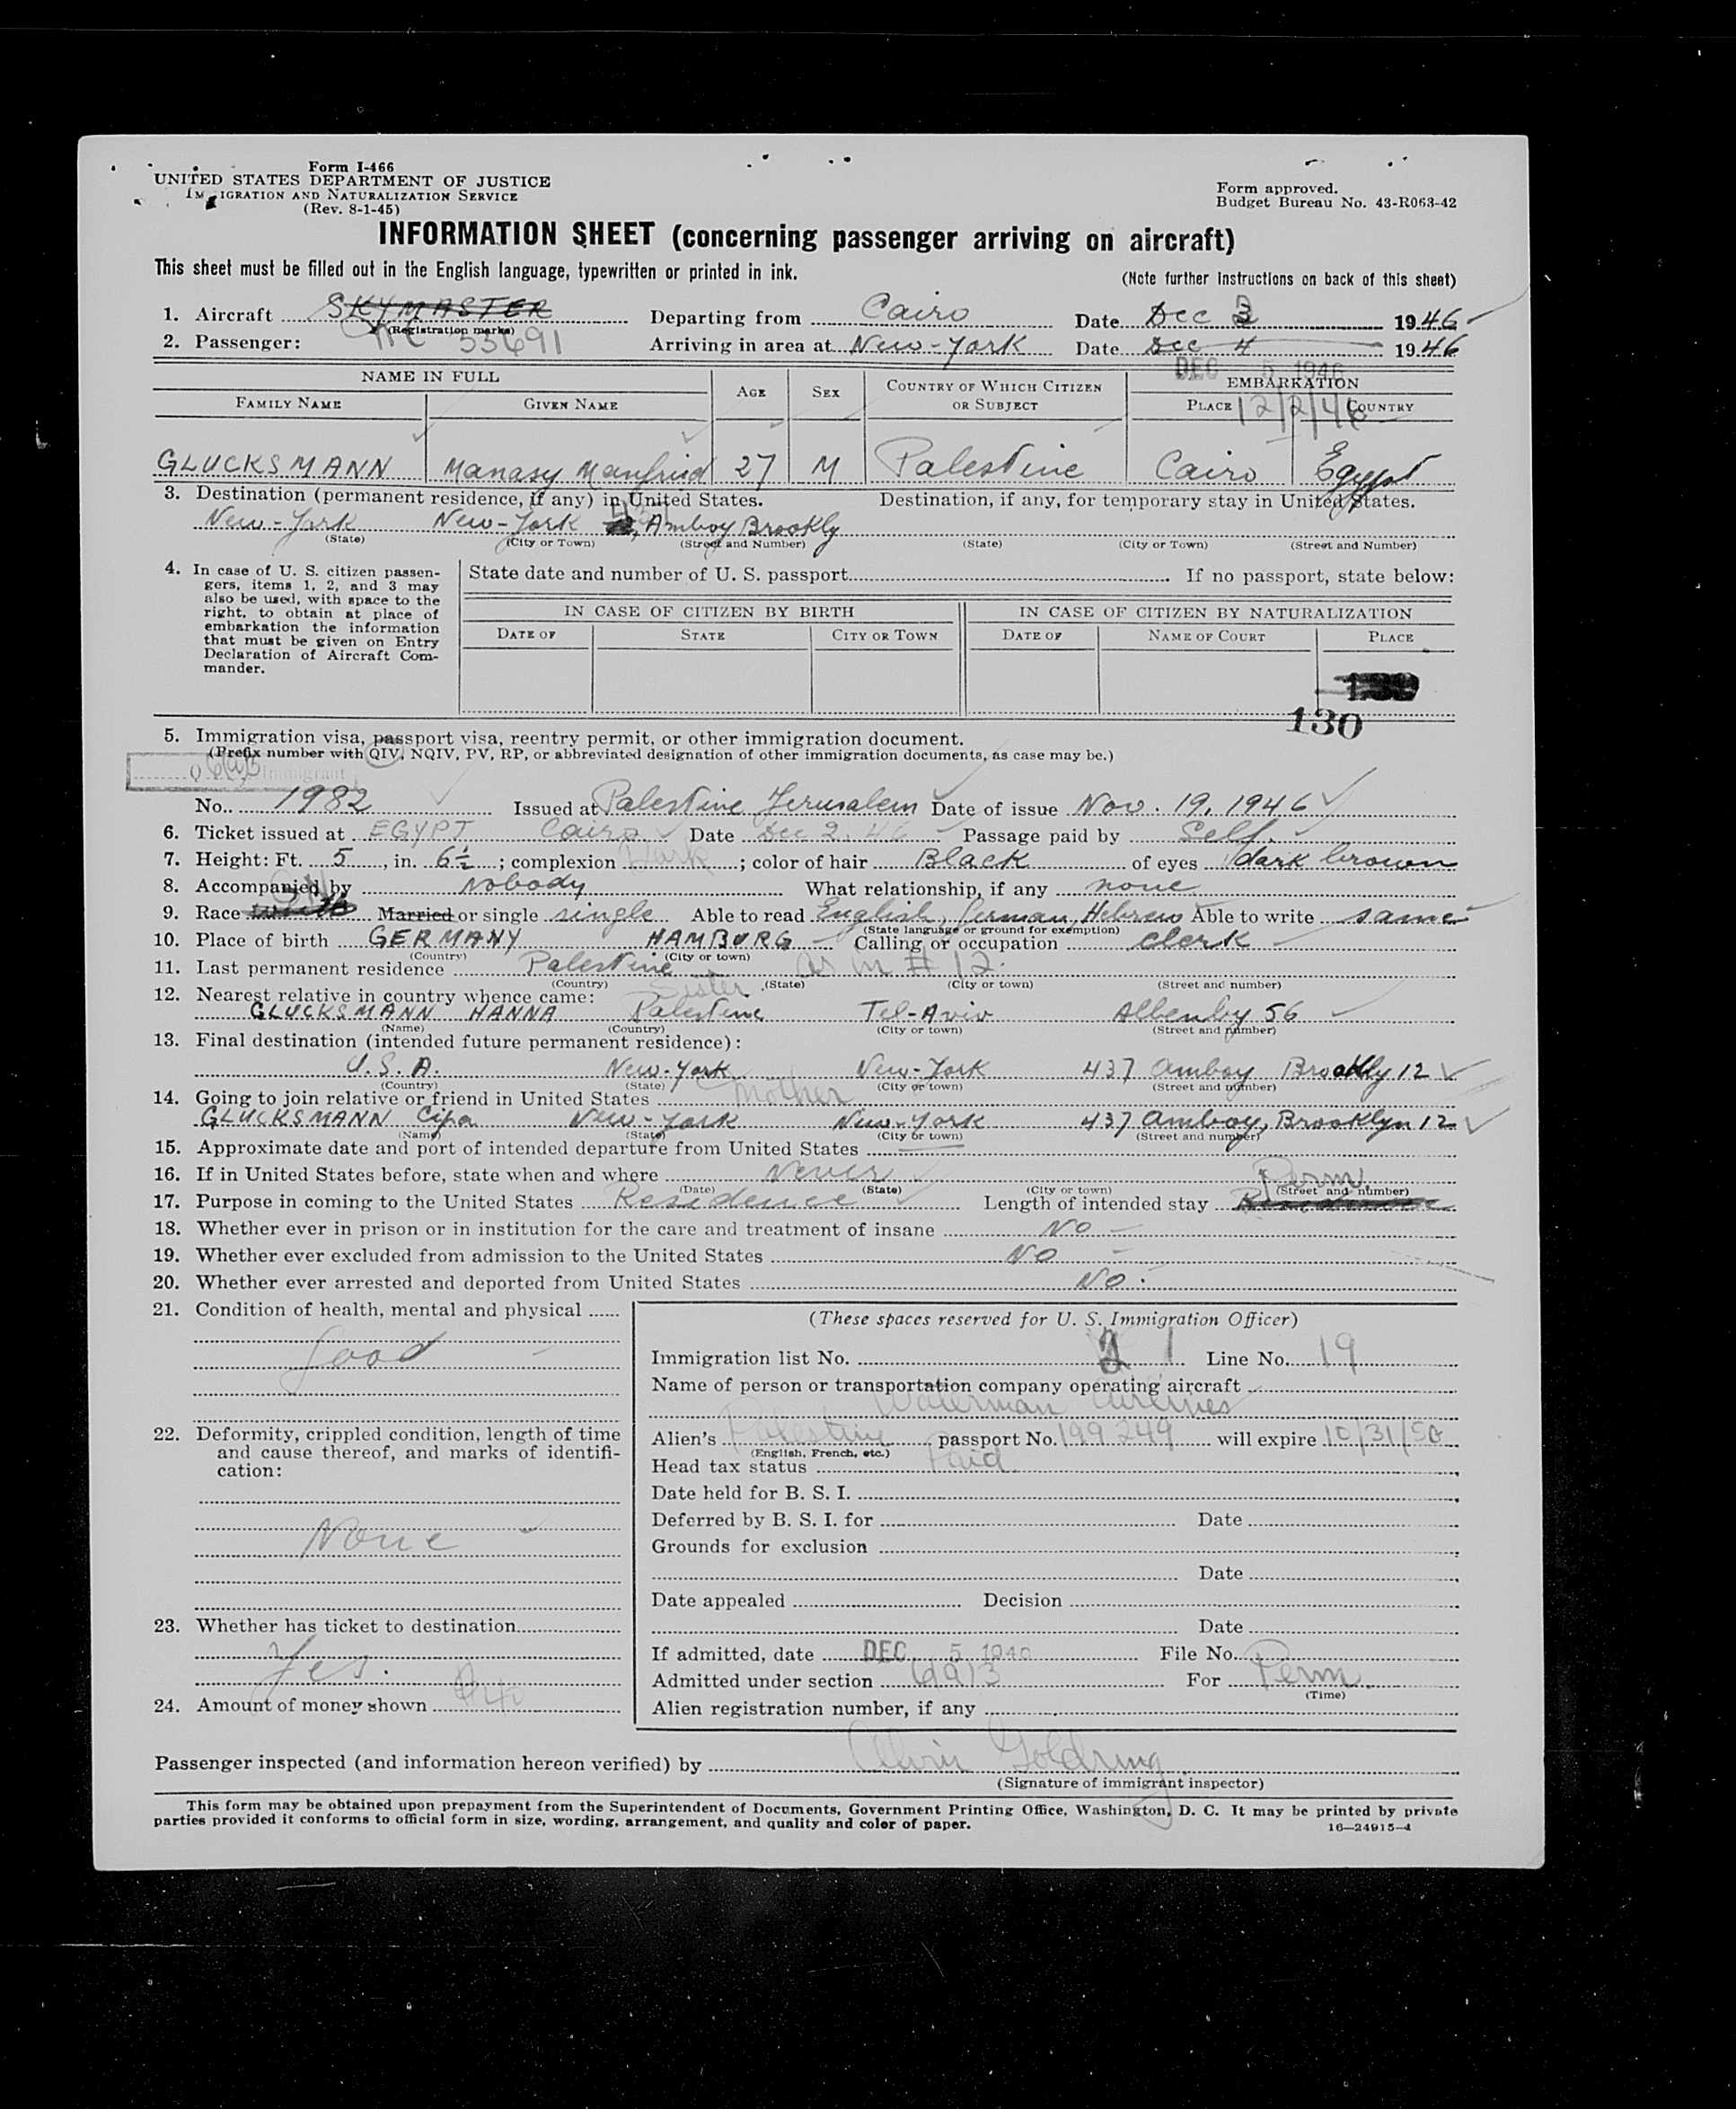 Form I-466
UNITED STATES DEPARTMENT OF JUSTICE
IMMIGRATION AND NATURALIZATION SERVICE
(Rev. 8-1-45)
Form approved.
Budget Bureau No. 43-R063-42
INFORMATION SHEET (concerning passenger arriving on aircraft)
This sheet must be filled out in the English language, typewritten or printed in ink.
(Note further instructions on back of this sheet)
1. Aircraft SKYMASTER Departing from Cairo Date Dec 3 1946
(Registration marks)
2. Passenger: 53691 Arriving in area at New-York Date Dec 4 1946
DEC 5 1946
NAME IN FULL AGE SEX COUNTRY OF WHICH CITIZEN OR SUBJECT EMBARKATION
FAMILY NAME GIVEN NAME PLACE 12/2/46 COUNTRY
GLUCKSMANN Manasy Manfried 27 M Palestine Cairo Egypt
3. Destination (permanent residence, if any) in United States. Destination, if any, for temporary stay in United States.
New-York New-York 437 Amboy Brookly
(State) (City or Town) (Street and Number) (State) (City or Town) (Street and Number)
4. In case of U. S. citizen passengers, items 1, 2, and 3 may also be used, with space to the right, to obtain at place of embarkation the information that must be given on Entry Declaration of Aircraft Commander.
State date and number of U. S. passport If no passport, state below:
IN CASE OF CITIZEN BY BIRTH IN CASE OF CITIZEN BY NATURALIZATION
DATE OF STATE CITY OR TOWN DATE OF NAME OF COURT PLACE
130
5. Immigration visa, passport visa, reentry permit, or other immigration document.
(Prefix number with QIV, NQIV, PV, RP, or abbreviated designation of other immigration documents, as case may be.)
No. 1982 Issued at Palestine Jerusalem Date of issue Nov. 19, 1946
6. Ticket issued at EGYPT Cairo Date Dec 2. 46 Passage paid by Self.
7. Height: Ft. 5, in. 6½; complexion Dark; color of hair Black of eyes dark brown
8. Accompanied by Nobody What relationship, if any none
9. Race Married or single single Able to read English, German, Hebrew Able to write same
(State language or ground for exemption)
10. Place of birth GERMANY HAMBURG Calling or occupation clerk
(Country) (City or town)
11. Last permanent residence Palestine as in # 12.
(Country) (State) (City or town) (Street and number)
12. Nearest relative in country whence came: Sister
GLUCKSMANN HANNA Palestine Tel-Aviv Allenby 56
(Name) (Country) (City or town) (Street and number)
13. Final destination (intended future permanent residence):
U.S.A. New-York New-York 437 Amboy Brookly 12
(Country) (State) (City or town) (Street and number)
14. Going to join relative or friend in United States Mother
GLUCKSMANN Cipa New-York New-York 437 Amboy, Brooklyn 12
(Name) (State) (City or town) (Street and number)
15. Approximate date and port of intended departure from United States
16. If in United States before, state when and where Never
(Date) (State) (City or town) (Street and number)
17. Purpose in coming to the United States Residence Length of intended stay Perm. Residence
18. Whether ever in prison or in institution for the care and treatment of insane No
19. Whether ever excluded from admission to the United States No
20. Whether ever arrested and deported from United States No.
21. Condition of health, mental and physical
Good
22. Deformity, crippled condition, length of time and cause thereof, and marks of identification:
None
23. Whether has ticket to destination
Yes.
24. Amount of money shown $40
(These spaces reserved for U. S. Immigration Officer)
Immigration list No. 1 Line No. 19
Name of person or transportation company operating aircraft
Waterman Airlines
Alien's Palestine passport No. 199249 will expire 10/31/50
(English, French, etc.)
Head tax status Paid
Date held for B. S. I.
Deferred by B. S. I. for Date
Grounds for exclusion
Date
Date appealed Decision
Date
If admitted, date DEC 5 1946 File No.
Admitted under section 6(a)3 For Perm.
(Time)
Alien registration number, if any
Passenger inspected (and information hereon verified) by Alvin Goldring
(Signature of immigrant inspector)
This form may be obtained upon prepayment from the Superintendent of Documents, Government Printing Office, Washington, D. C. It may be printed by private
parties provided it conforms to official form in size, wording, arrangement, and quality and color of paper.
16—24915-4